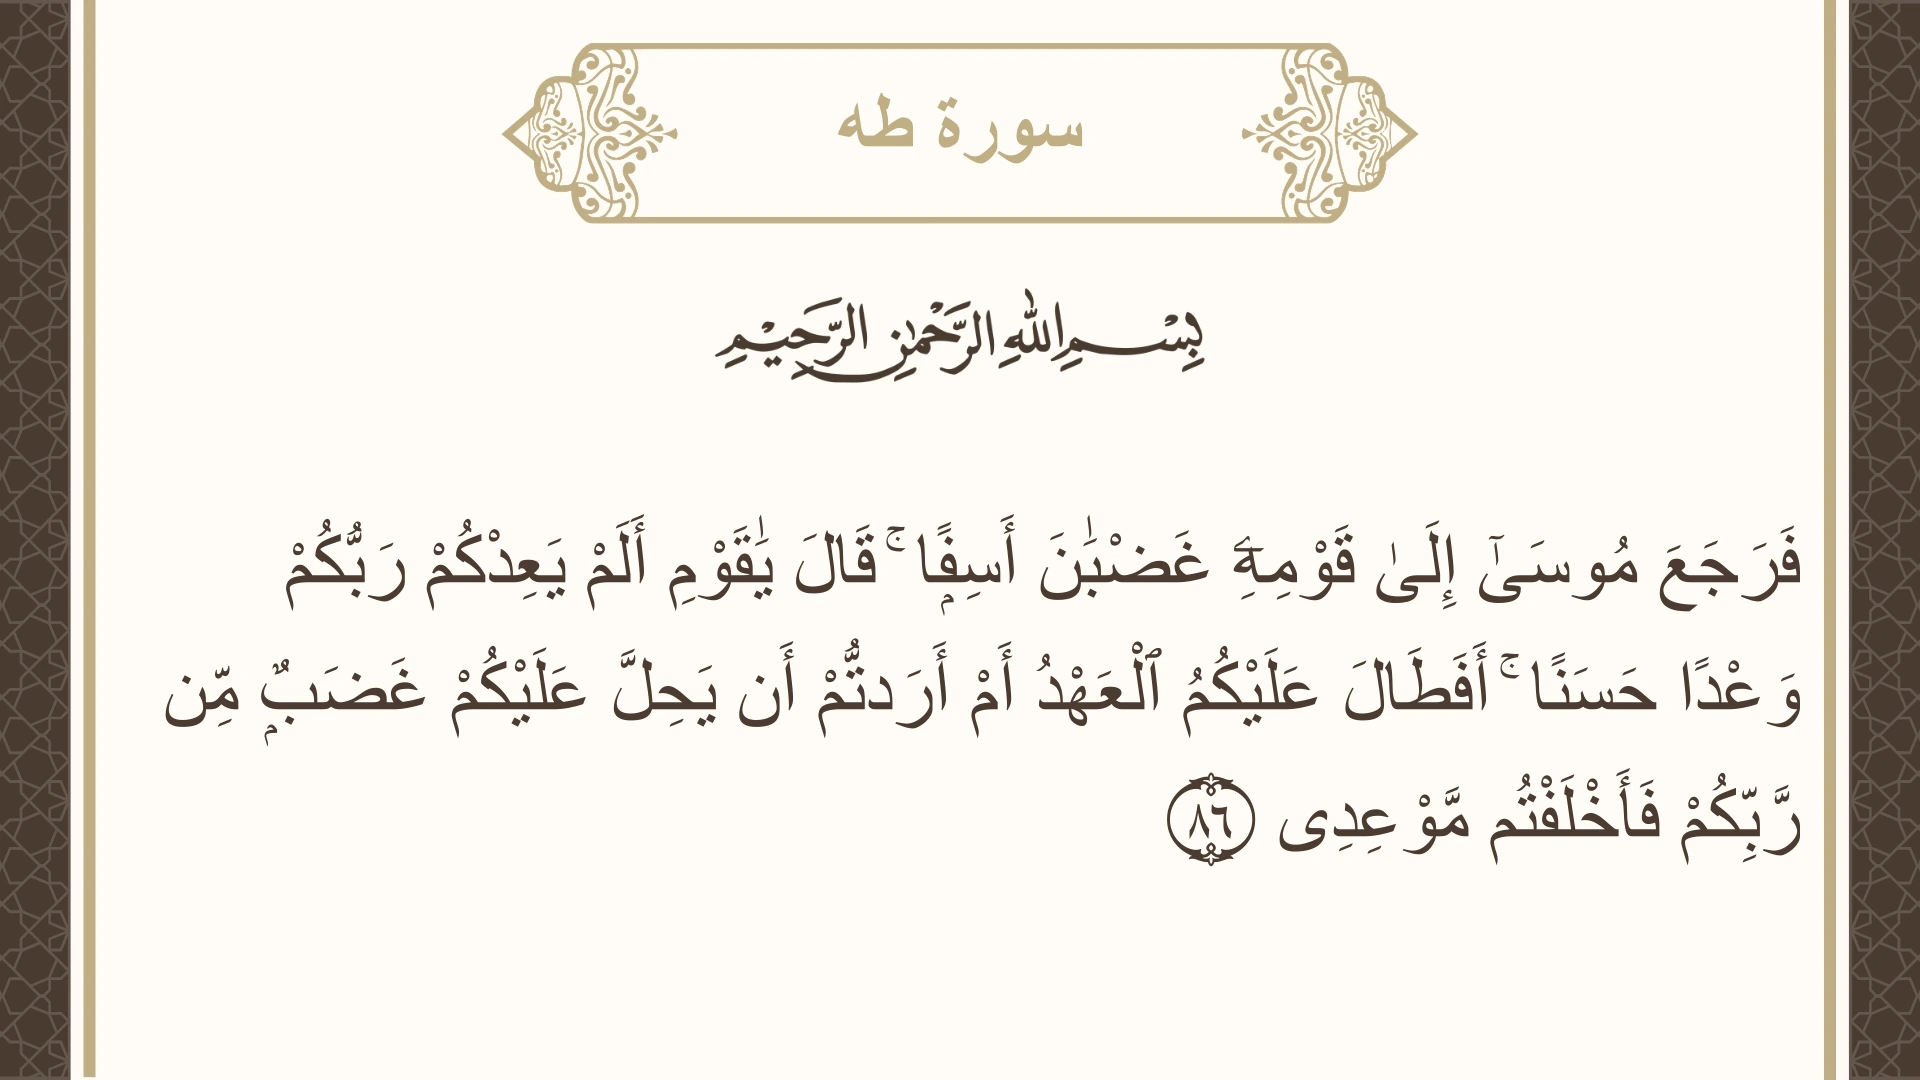 سورة طه
بِسْمِ اللهِ الرَّحْمٰنِ الرَّحِيْمِ
فَرَجَعَ مُوسَىٰٓ إِلَىٰ قَوْمِهِۦ غَضْبَٰنَ أَسِفًۭا ۚ قَالَ يَٰقَوْمِ أَلَمْ يَعِدْكُمْ رَبُّكُمْ
وَعْدًا حَسَنًا ۚ أَفَطَالَ عَلَيْكُمُ ٱلْعَهْدُ أَمْ أَرَدتُّمْ أَن يَحِلَّ عَلَيْكُمْ غَضَبٌۭ مِّن
رَّبِّكُمْ فَأَخْلَفْتُم مَّوْعِدِى ٨٦